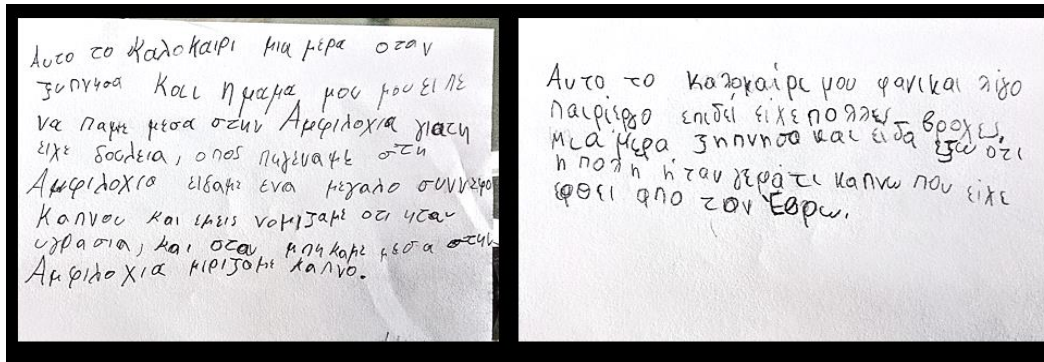 Αυτο το καλοκαιρι μια μερα οταν
ξυπνησα και η μαμα μου μου ειπε
να παμε μεσα στην Αμφιλοχια γιατη
ειχε δουλεια, οπος πηγεναμε στη
Αμφιλοχια ειδαμε ενα μεγαλο συννεφο
καπνου και εμεις νομιζαμε οτι ηταν
υγρασια, και οταν μπηκαμε μεσα στην
Αμφιλοχια μιριζαμε καπνο.
Αυτο το καλοκαίρι μου φανικαι λίγο
παιρίεργο επιδεί είχε πολλες βροχες,
μια μερα ξηπνησα και ειδα εξω ότι
η πολη ήταν γεράτι καπνω που είχε
ερθει απο τον Έβρω.